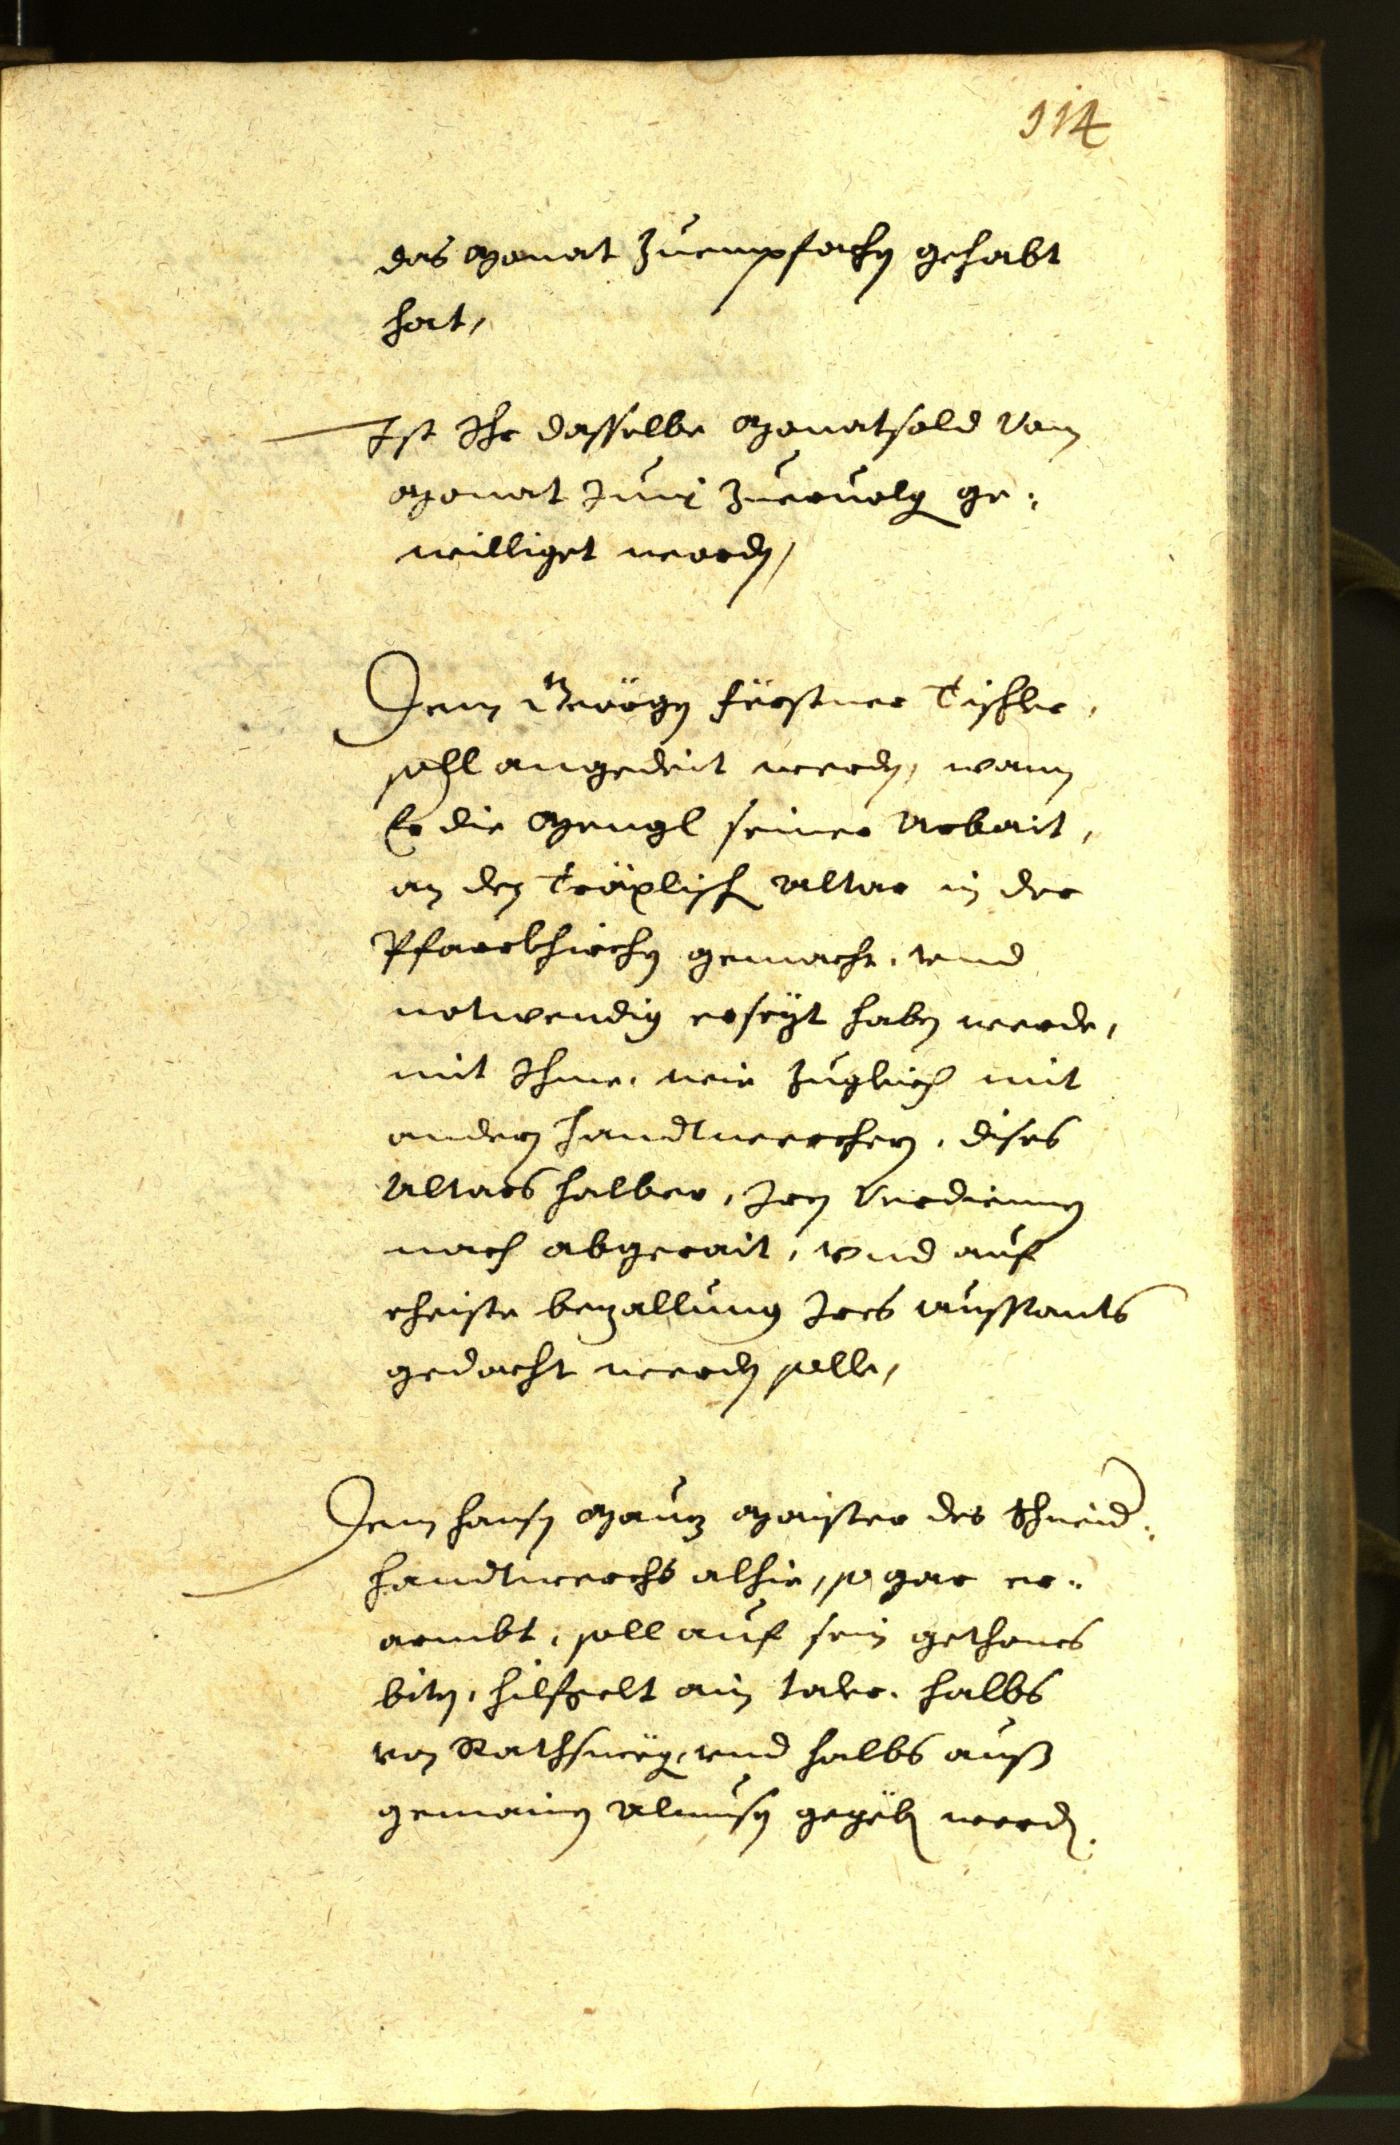 114
das Monat zuempfachen gehabt
hat,
Ist Ihr dasselbe Monatsold vom
Monat Junj zueruolg ge-
williget worden,
Dem Geörgen Fürstner Tischler,
sohl angedeit werden, wann
Er die Mengl seiner Arbait,
an den Träxlisch Altar in der
Pfarrkhirchen gemacht, vnd
notwendig ersezt haben werde,
mit Ihme, wie zugleich mit
andern handtwerchern, dises
Altars halber, Irn Verdienen
nach abgerait, vnd auf
eheiste bezallung Ires ausstants
gedacht werden solle,
Dem Hansen Maister des Schneid-
handtwerchs alhie, so gar er-
armbt, soll auf sein gethones
biten, hilfgelt ain taler, halbs
von Rathswegen, vnd halbs auß
gemainen Almusen gegeben werden.